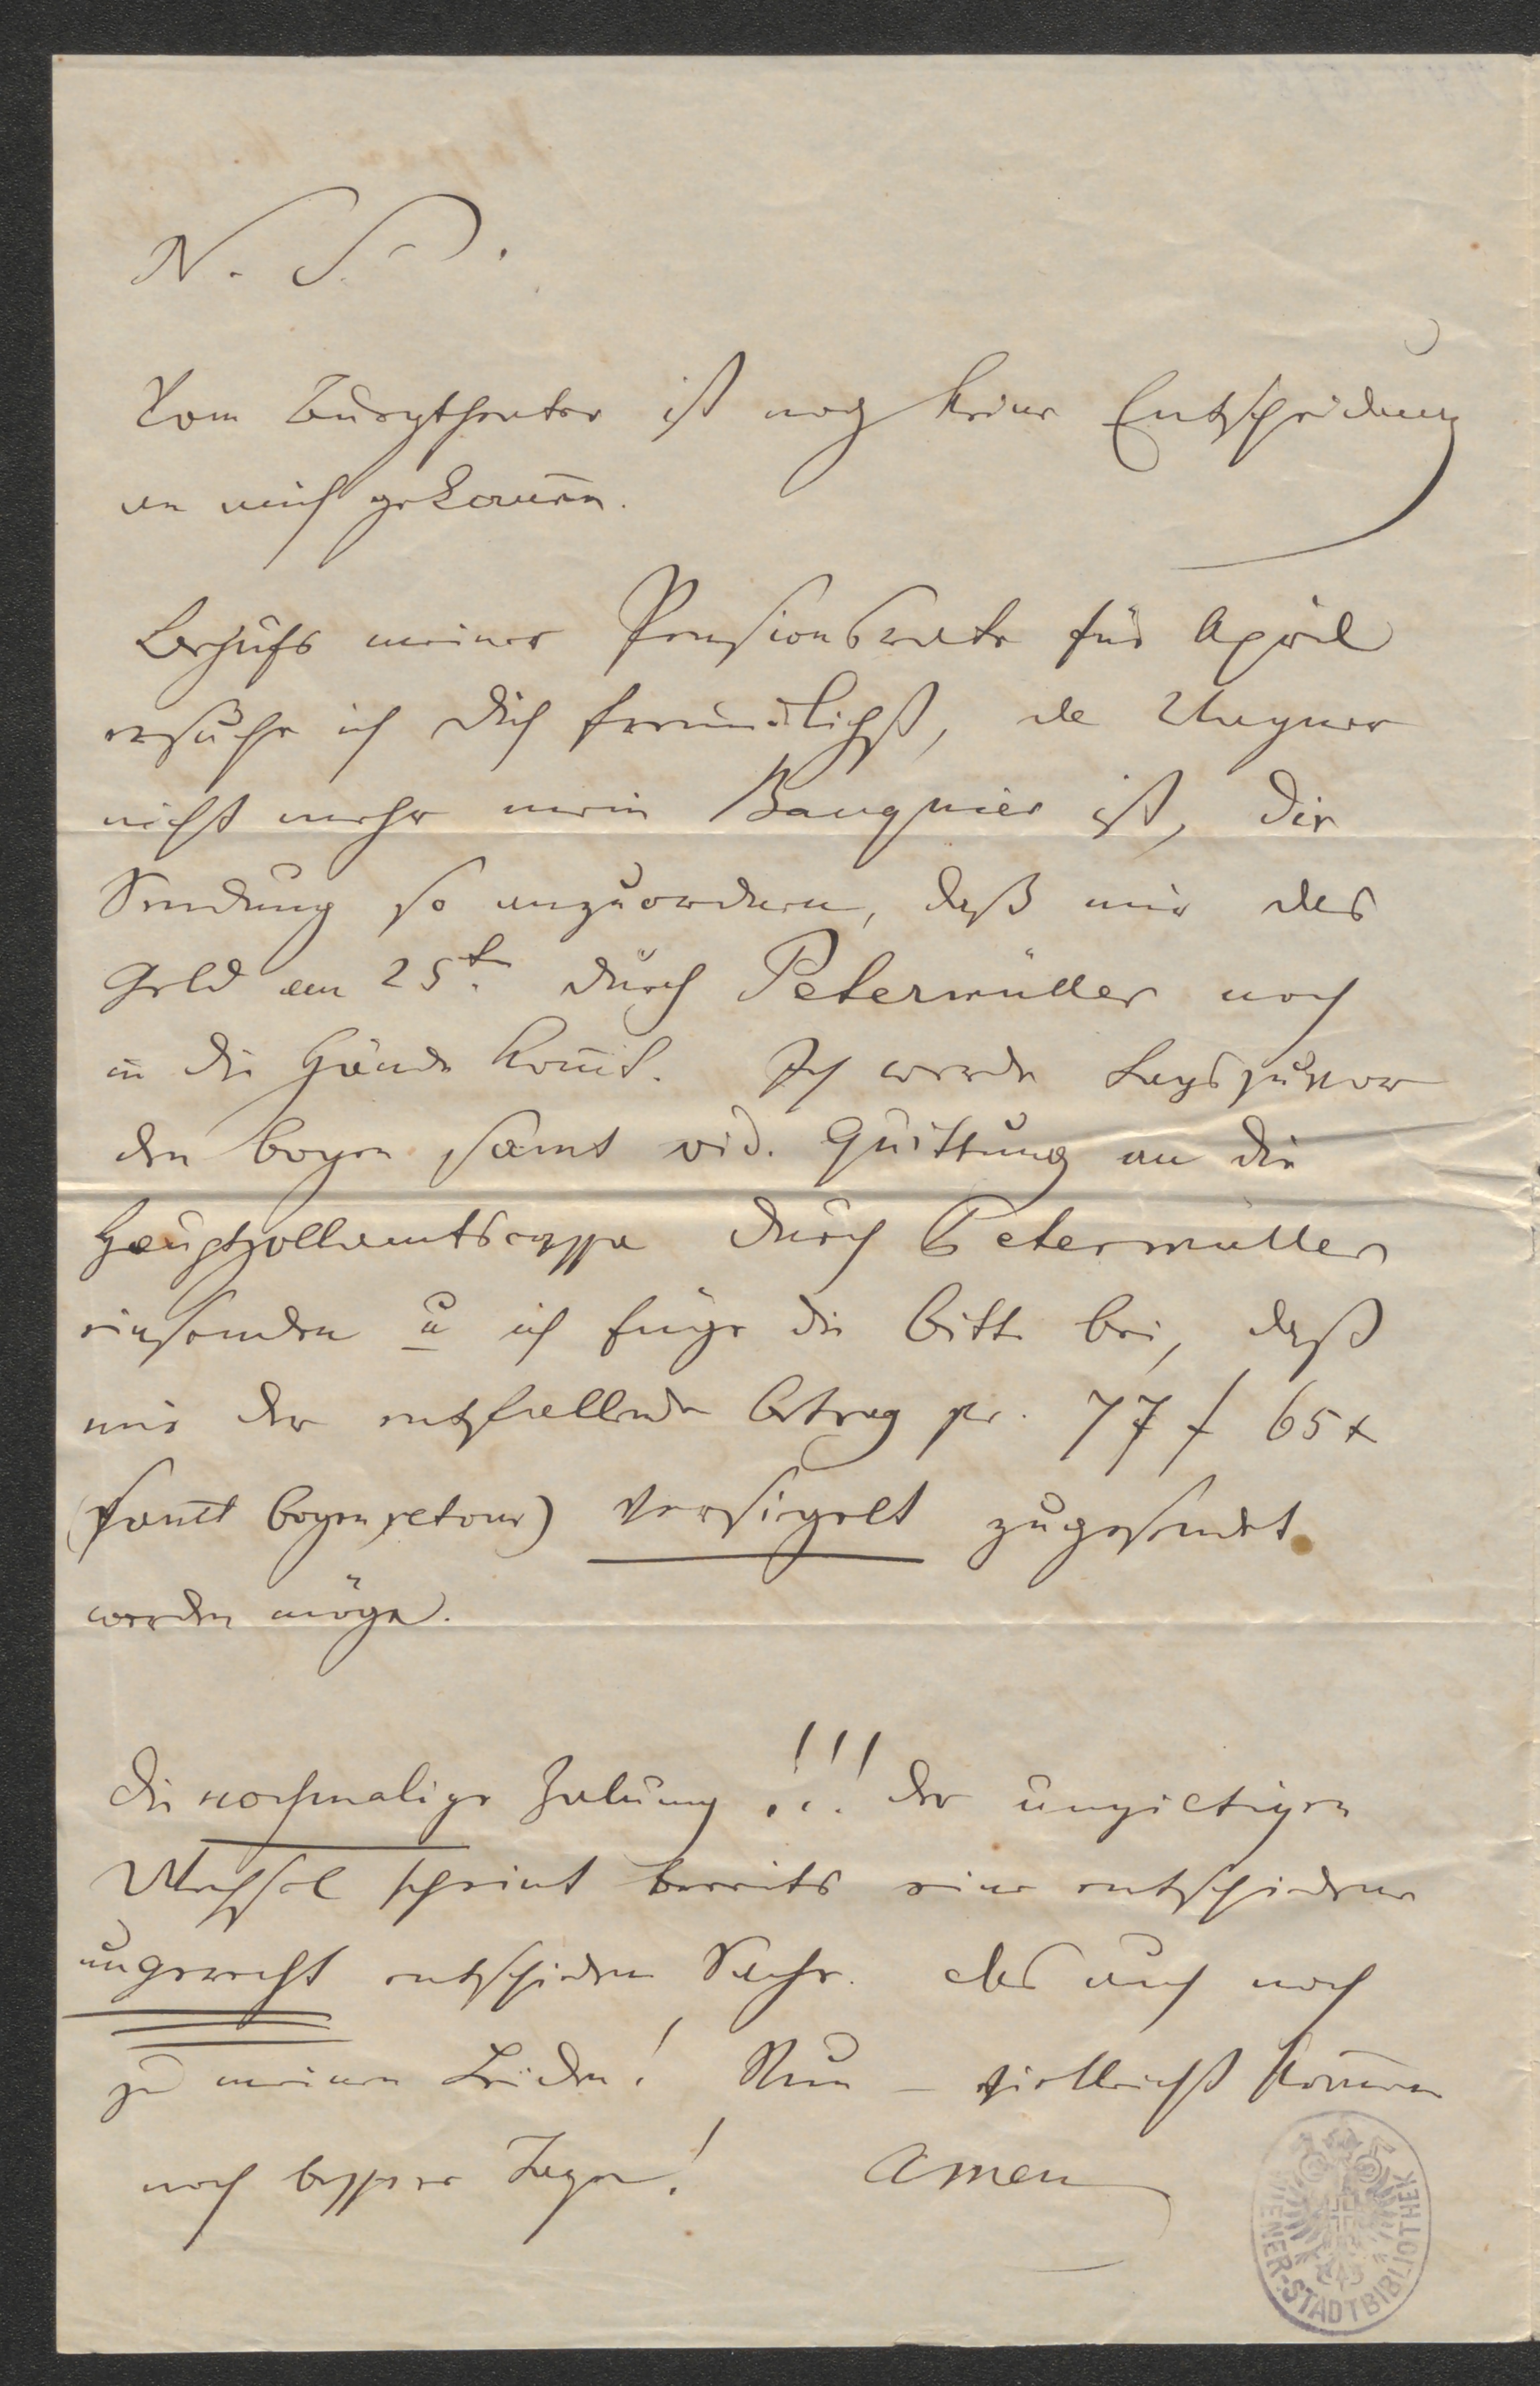 N. S.
Vom Burgtheater ist noch keine Entscheidung
an mich gekom̄en.
Behufs meiner Pensionsrate für April
ersuche ich Dich freundlichst, da Wagner
nicht mehr mein Banquier ist, die
Sendung so anzuordnen, daß mir das
Geld am 25t. durch Petermüller noch
in die Hände kom̄t. Ich werde tagszuvor
den Bogen samt vid. Quittung an die
Hauptzollamtscassa durch Petermüller
einsenden u ich füge die Bitte bei, daß
mir der entfallende Betrag pr. 77 f 65 x
(sam̄t Bogen retour) versiegelt zugesendet
werden möge.
Die nochmalige Zalung!!! der ungiltigen
Wechsel scheint bereits eine entschiedene
ungerecht entschiedene Sache. Das auch noch
zu meinen Leiden! Nun – vielleicht kom̄en
noch bessere Tage! Amen
WIENER-STADTBIBLIOTHEK